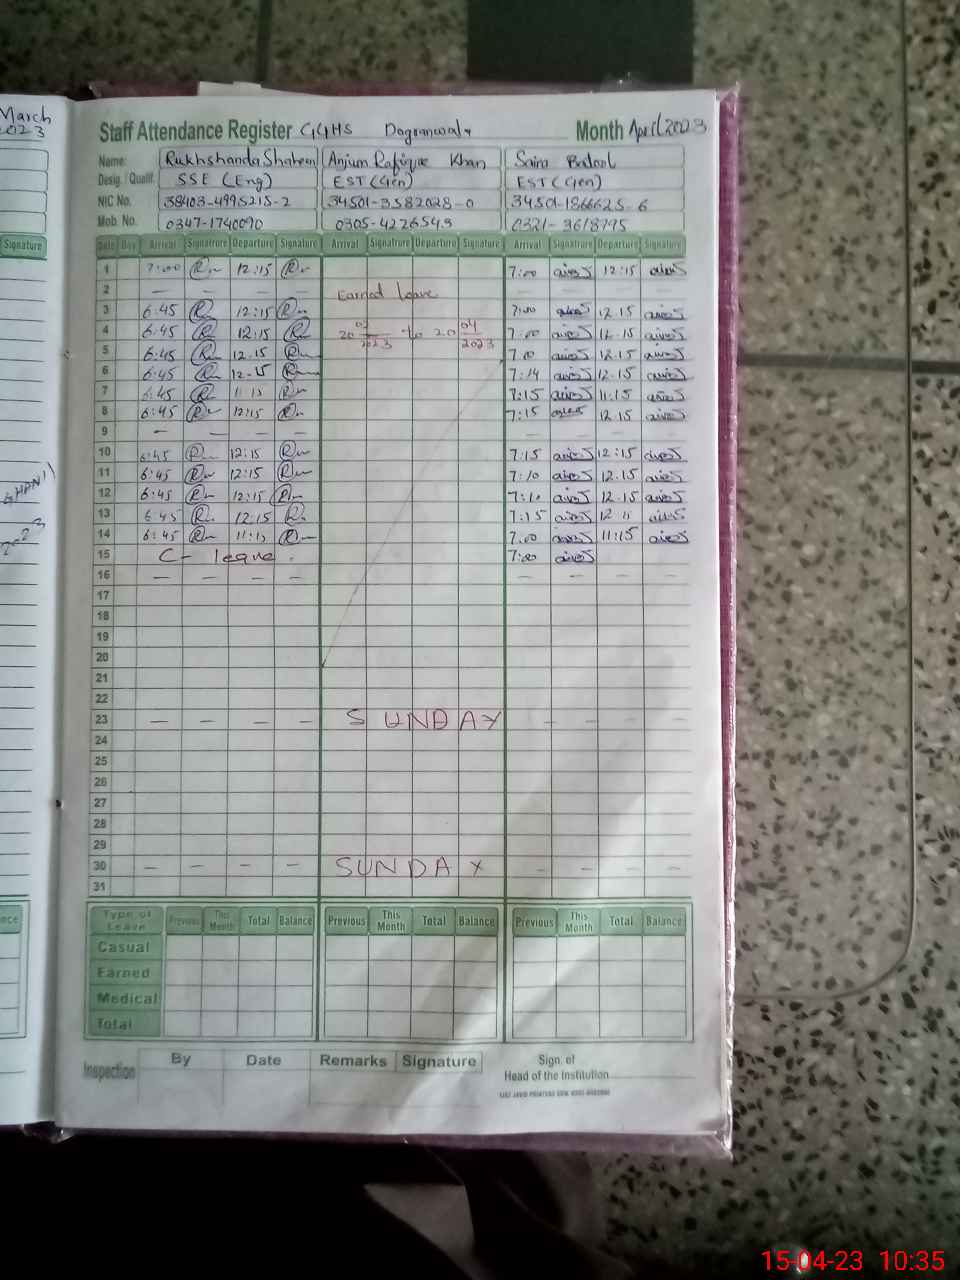 March
2023
Staff Attendance Register GGHS Dogranwala Month April 2023
Name: Rukhshanda Shaheen Anjum Rafique Khan Saira Batool
Desig. / Qualif. SSE (Eng) EST (Gen) EST (Gen)
NIC No. 38403-4995215-2 34501-3582028-0 34501-1866625-6
Mob. No. 0347-1740090 0305-4226549 0321-9618795
Signature Date Day Arrival Signatrure Departure Signature Arrival Signatrure Departure Signature Arrival Signatrure Departure Signature
1 7:00 12:15 7:00 سائرہ 12:15 سائرہ
2 — — — — Earned leave — — — —
3 6:45 12:15 7:00 سائرہ 12.15 سائرہ
4 6:45 12:15 20 03 2023 to 20 04 2023 7:00 سائرہ 12.15 سائرہ
5 6:45 12.15 7:00 سائرہ 12.15 سائرہ
6 6:45 12.15 7:14 سائرہ 12.15 سائرہ
7 6:45 11 15 7:15 سائرہ 11:15 سائرہ
8 6:45 12:15 7:15 سائرہ 12.15 سائرہ
9 — — — — — — — —
10 6:45 12:15 7:15 سائرہ 12:15 سائرہ
11 6:45 12:15 7:10 سائرہ 12.15 سائرہ
12 6:45 12:15 7:10 سائرہ 12.15 سائرہ
13 6:45 12:15 7:15 سائرہ سائرہ
14 6:45 11:15 7:00 سائرہ 11:15 سائرہ
15 C- leave. 7:00 سائرہ
16 — — — — — — — —
17
18
19
20
21
22
23 — — — — SUNDAY — — — —
24
25
26
27
28
29
30 — — — — SUNDAY — — — —
31
Type of Leave Previous This Month Total Balance Previous This Month Total Balance Previous This Month Total Balance
Casual
Earned
Medical
Total
Inspection By Date Remarks Signature Sign. of
Head of the Institution
15-04-23 10:35